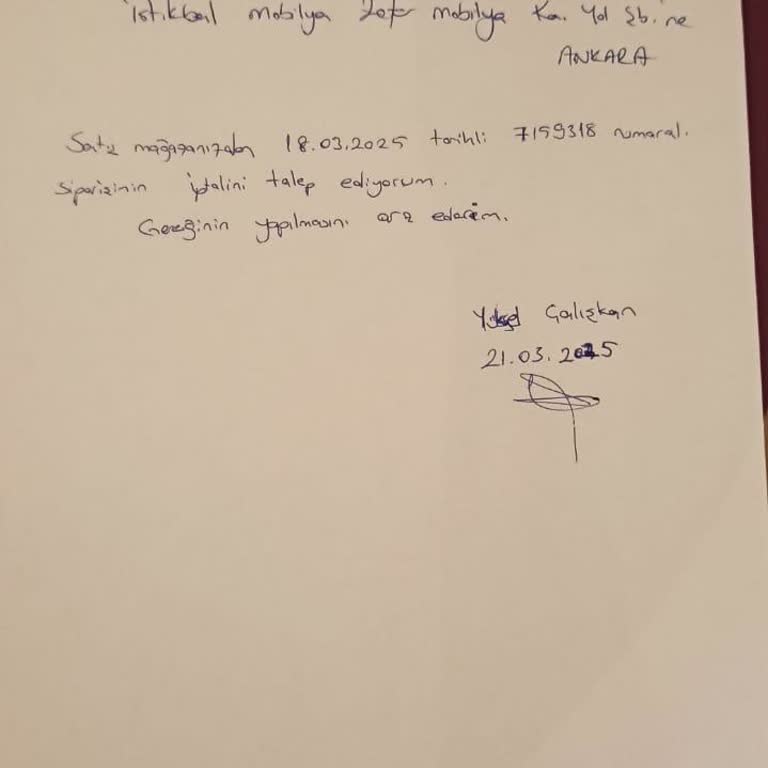 İstikbal mobilya Zafer mobilya Ka. Yol Şb. ne
ANKARA
Satış mağazanızdan 18.03.2025 tarihli 7159318 numaralı
siparişinin iptalini talep ediyorum.
Gereğinin yapılmasını arz ederim.
Yüksel Çalışkan
21.03.2025